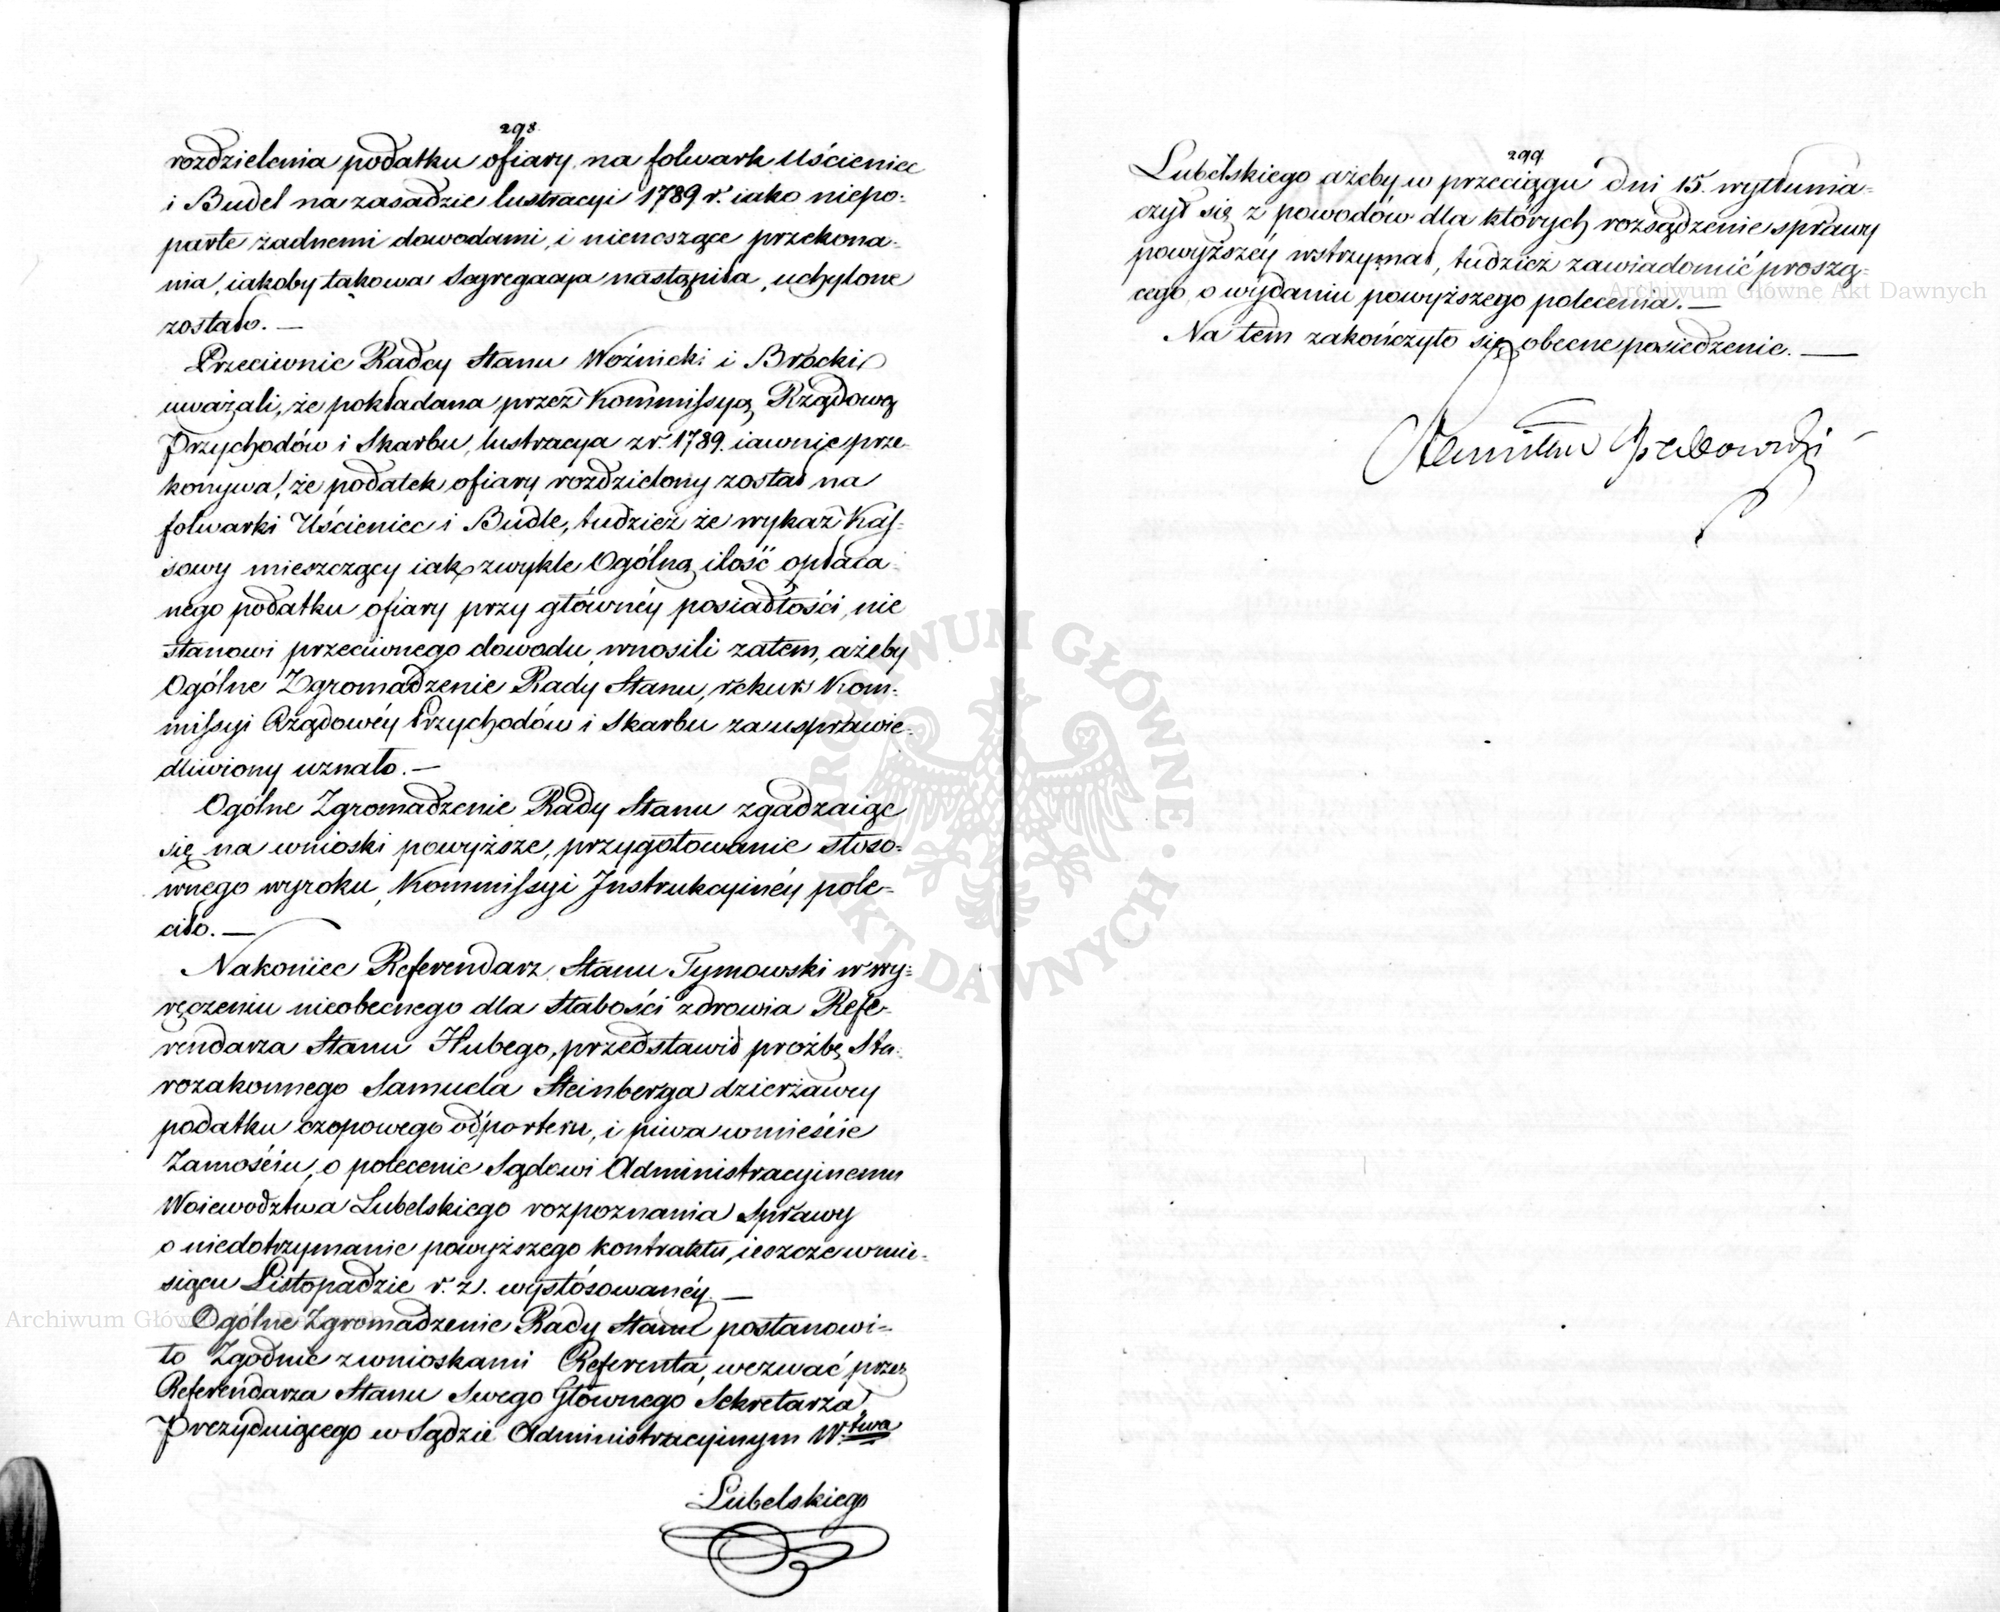 298.
rozdzielenia podatku ofiary na folwark Uścieniec
i Budel na zasadzie lustracyi 1789 r. iako niepo-
parte żadnemi dowodami, i nienoszące przekona-
nia, iakoby takowa Segregacya nastąpiła, uchylone
zostało. —
Przeciwnie Radcy Stanu Woźnicki i Brocki
uważali, że pokładana przez Kommissyą Rządową
Przychodów i Skarbu, lustracya z r. 1789. iawnie prze-
konywa, że podatek ofiary rozdzielony został na
folwarki Uścieniec i Budle, tudzież że wykaz Kas-
sowy mieszczący iak zwykle Ogólną ilość opłaca-
nego podatku ofiary przy główney posiadłości, nie
stanowi przeciwnego dowodu, wnosili zatem, ażeby
Ogólne Zgromadzenie Rady Stanu, rekurs Kom-
missyi Rządowéy Przychodów i Skarbu za usprawie-
dliwiony uznało. —
Ogólne Zgromadzenie Rady Stanu zgadzaiąc
się na wnioski powyższe, przygotowanie stoso-
wnego wyroku, Kommissyi Instrukcyinéy pole-
ciło. —
Nakoniec Referendarz Stanu Tymowski w wy-
ręczeniu nieobecnego dla słabości zdrowia Refe-
rendarza Stanu Hubego, przedstawił proźbę Sta-
rozakonnego Samuela Steinberga dzierżawcy
podatku czopowego od porteru, i piwa w mieście
Zamościu, o polecenie Sądowi Administracyinemu
Woiewództwa Lubelskiego rozpoznania Sprawy
o niedotrzymanie powyższego kontraktu, ieszcze w mie-
siącu Listopadzie r. z. wystósowanéy. —
Ogólne Zgromadzenie Rady Stanu postanowi-
ło Zgodnie z wnioskami Referenta, wezwać przez
Referendarza Stanu Swego Głównego Sekretarza
Prezyduiącego w Sądzie Administracyinym W.twa
Lubelskiego
299.
Lubelskiego ażeby w przeciągu dni 15. wytłuma-
czył się z powodów dla których rozsądzenie sprawy
powyższéy wstrzymał, tudzież zawiadomić proszą-
cego, o wydaniu powyższego polecenia. —
Na tem zakończyło się obecne posiedzenie. —
Stanisław Grabowski
Archiwum Główne Akt Dawnych
Archiwum Główne Akt Dawnych
ARCHIWUM GŁÓWNE AKT DAWNYCH